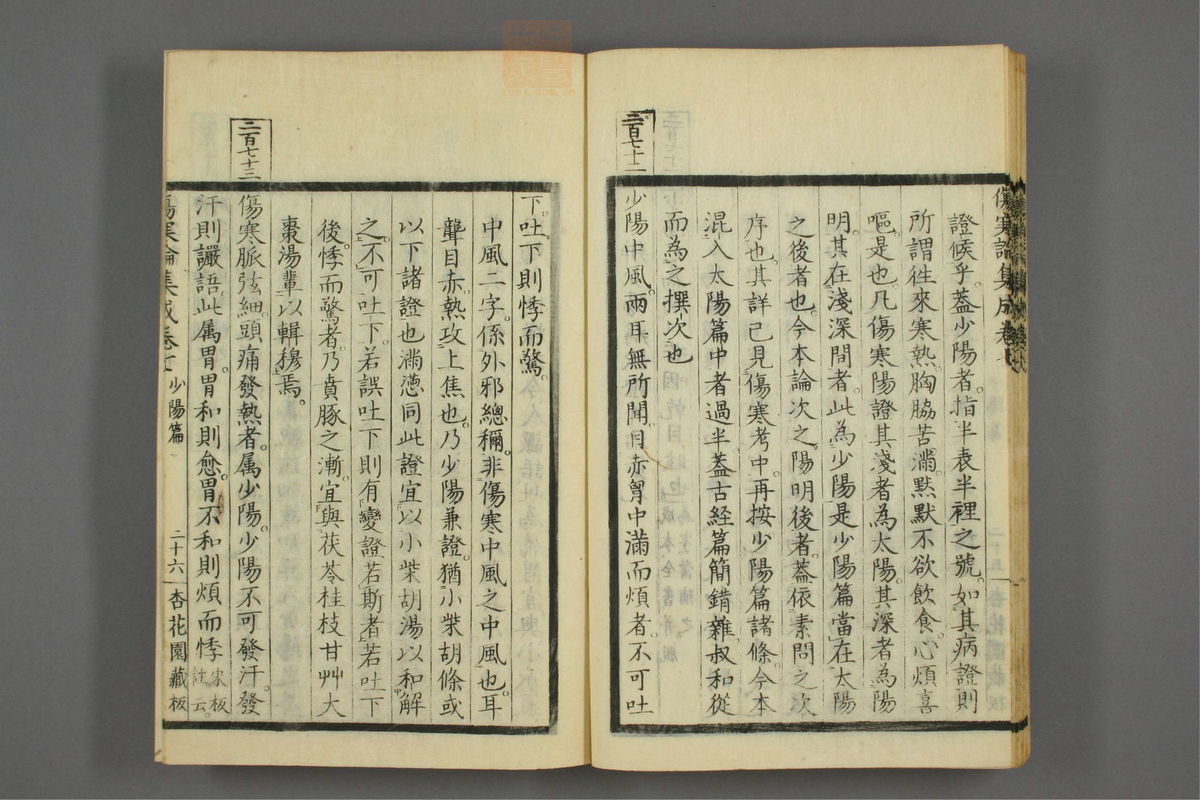 傷寒論集成卷
證候乎。蓋少陽者。指半表半裡之號。如其病證則
所謂徃來寒熱。胸脇苦滿。默默不欲飲食。心煩喜
嘔。是也。凡傷寒陽證。其淺者為太陽。其深者為陽
明。其在淺深間者。此為少陽。是少陽篇。當在太陽
之後者也。今本論次之。陽明後者。蓋依素問之次
序也。其詳已見傷寒考中。再按少陽篇諸條。今本
混入太陽篇中者過半。蓋古経篇簡錯雜。叔和從
而為之撰次也
二百七十二
少陽中風。兩耳無所聞。目赤。胷中滿而煩者。不可吐
下。吐下則悸而驚。
中風二字。係外邪總稱。非傷寒中風之中風也。耳
聾目赤。熱攻上焦也。乃少陽兼證。猶小柴胡條或
以下諸證也。滿懣同。此證宜以小柴胡湯以和解
之。不可吐下。若誤吐下。則有變證若斯者。若吐下
後。悸而驚者。乃賁豚之漸。宜與茯苓桂枝甘艸大
棗湯輩。以輯穆焉。
二百七十三
傷寒脈弦細。頭痛發熱者。属少陽。少陽不可發汗。發
汗則讝語。此属胃。胃和則愈。胃不和則煩而悸
宋板
註云。
傷寒論集成卷七
少陽篇
二十六
杏花園藏板